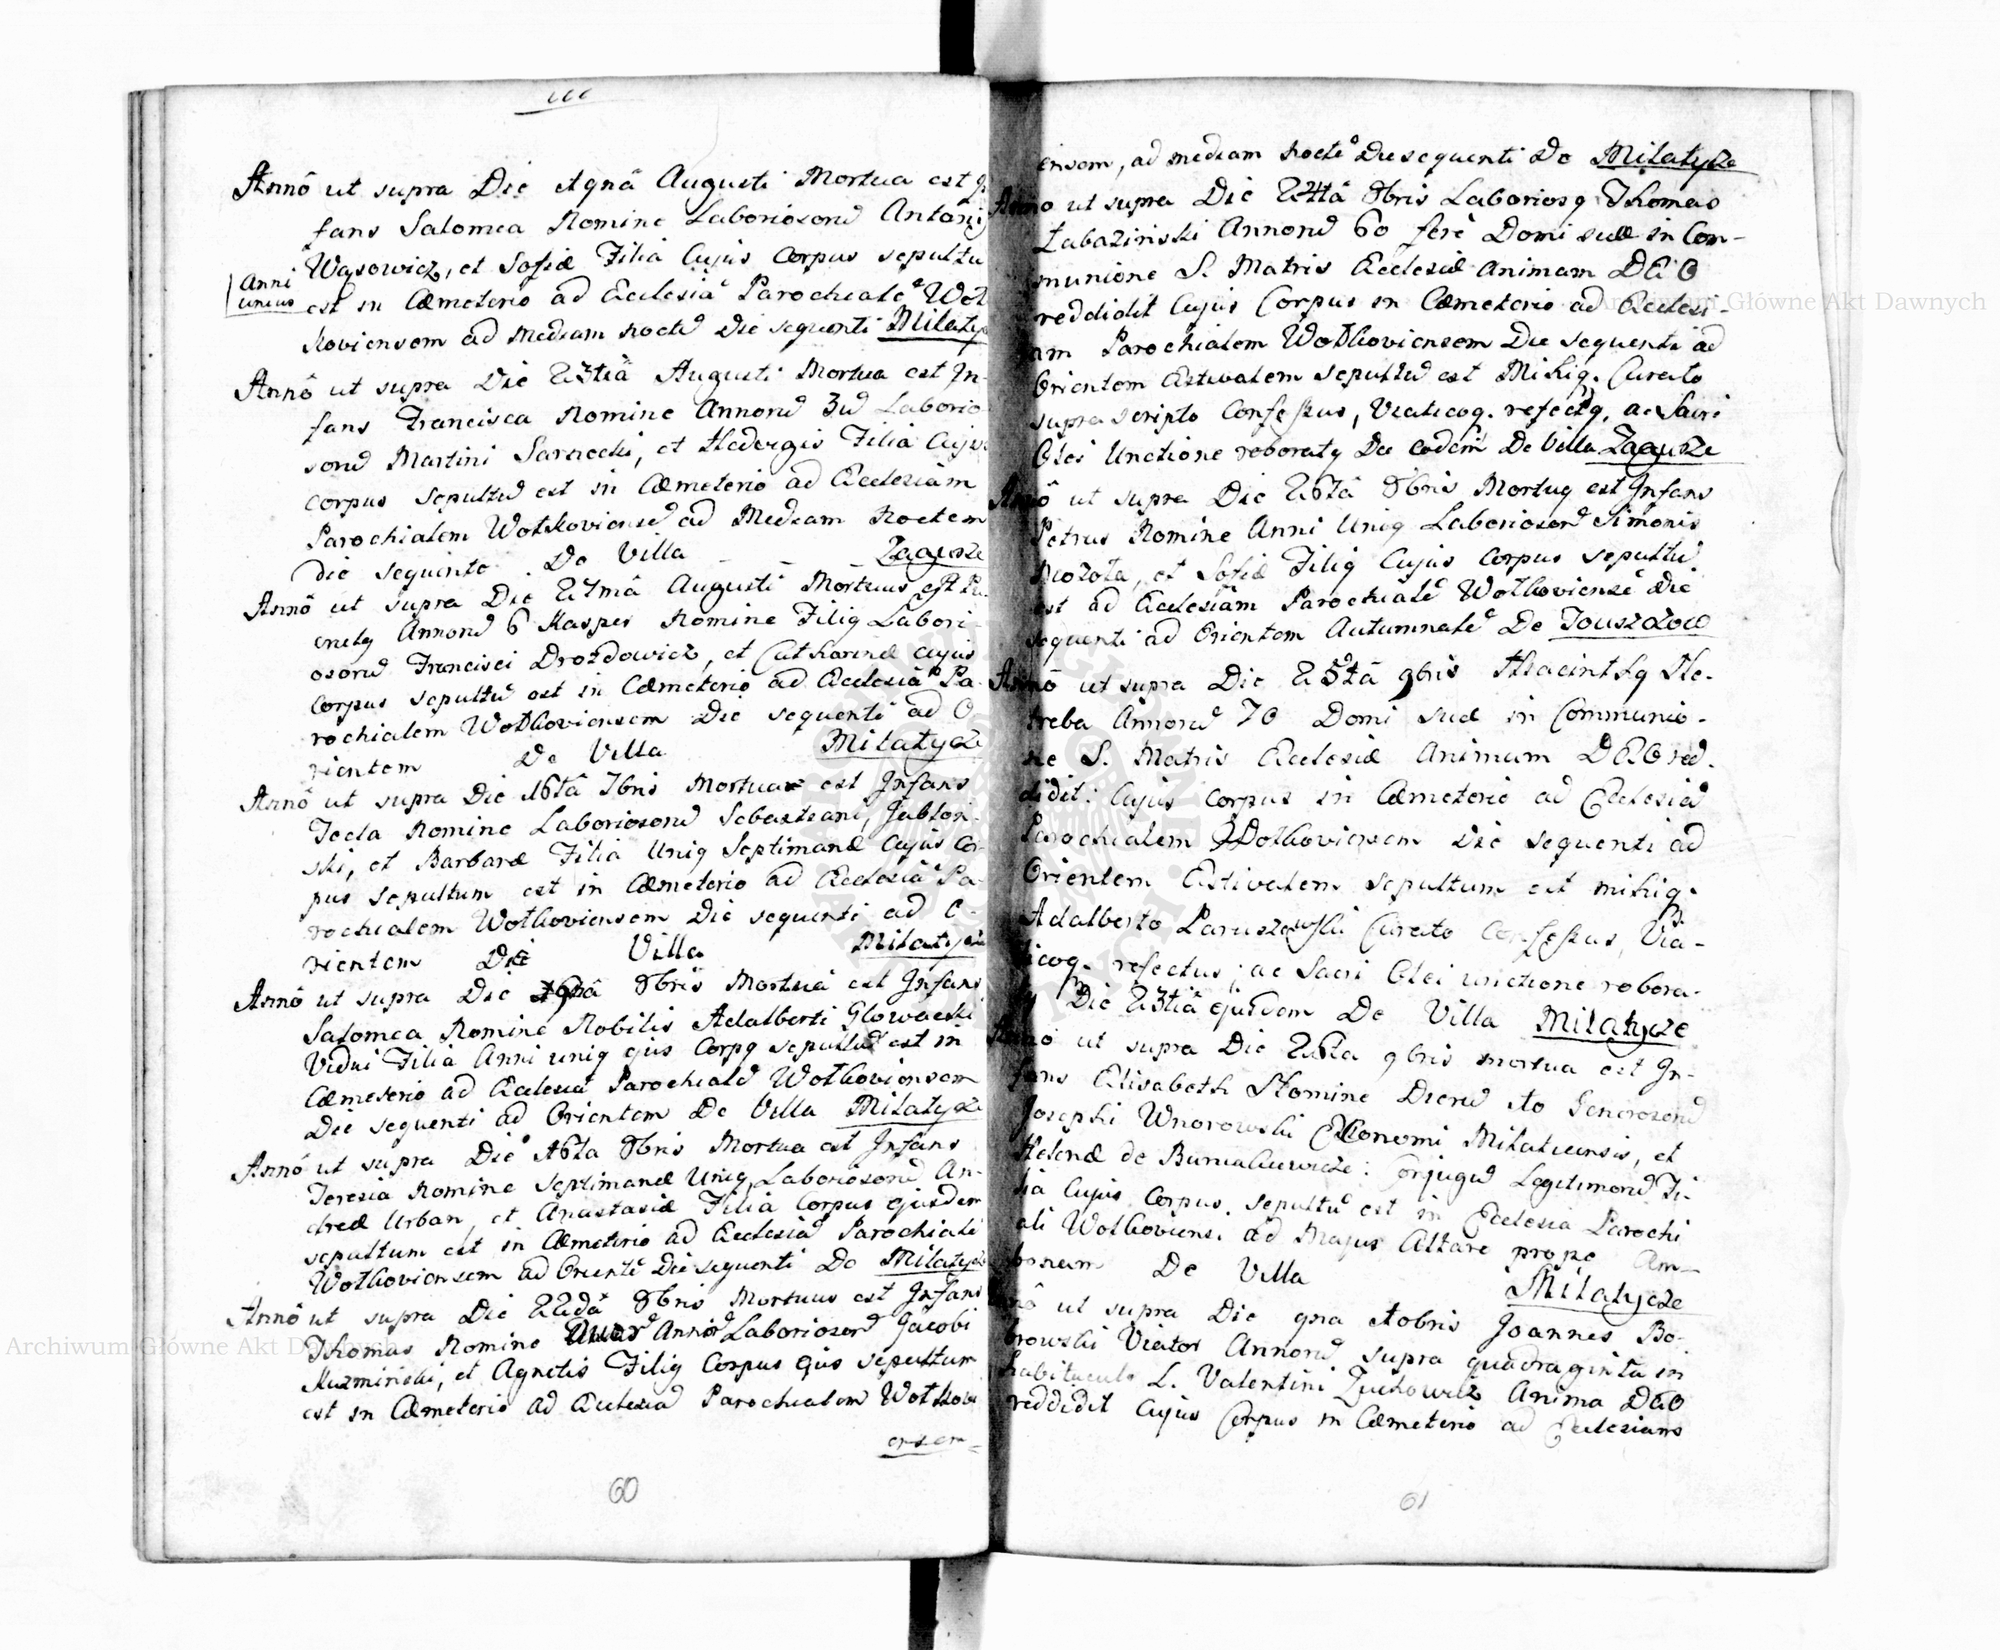 Annô ut supra Die 19nâ Augusti Mortua est In
fans Salomea Nomine Laboriosorū Antonij
Wąsowicz, et Sofiæ Filia Cujus Corpus sepultū
Anni
unius
est in Cæmeterio ad Ecclesiā Parochialē Woł
koviensem ad Mediam Noctē Die sequenti Miłaty
Annô ut supra Die 23tiâ Augusti Mortua est In-
fans Francisca Nomine Annorū 3ū Laborio
sorū Martini Sarnecki, et Hedvigis Filia Cujus
Corpus Sepultū est in Cæmeterio ad Ecclesiam
Parochialem Wołkoviensē ad Mediam Noctem
die sequente De Villa Zagurze
Annô ut supra Die 27mâ Augusti Mortuus est Pu
Annorū 6 Kasper Nomine Filiq Labori-
osorū Francisci Drozdowicz, et Catharinæ Cujus
Corpus sepultū est in Cæmeterio ad Ecclesiā Pa-
rochialem Wołkoviensem Die sequenti ad O-
rientem De Villa Miłatycze
Annô ut supra Die 16tâ 7bris Mortua est Infans
Tecla Nomine Laboriosorū Sebastiani Jabłon-
ski, et Barbaræ Filia Uniq Septimanæ Cujus Cor
pus Sepultum est in Cæmeterio ad Ecclesiā Pa-
rochialem Wołkoviensem Die sequenti ad O-
rientem De Villa Miłatycze
Annô ut supra Die 8bris Mortua est Infans
Salomea Nomine Nobilis Adalberti Głowacki
Vidui Filia Anni uniq ejus Corpq sepultū est in
Cæmeterio ad Ecclesiā Parochialē Wołkoviensem
Die sequenti ad Orientem De Villa Miłatycze
Annô ut supra Die 16ta 8bris Mortua est Infans
Teresia Nomine Septimanæ Uniq Laboriosorū An-
dreæ Urban, et Anastasiæ Filia Corpus ejusdem
sepultum est in Cæmeterio ad Ecclesiā Parochialē
Wołkoviensem ad Orientē Die sequenti De Miłatycze
Annô ut supra Die 22dâ 8bris Mortuus est Infans
Thomas Nomine Annorū Laboriosorū Jacobi
Kuzmiński, et Agnetis Filiq Corpus ejus sepultum
est in Cæmeterio ad Ecclesiā Parochialem Wołkovi
ensem
60
ensem, ad mediam Noctē Die sequenti De Miłatycze
Anno ut supra Die 24tâ 8bris Laboriosq Thomas
Łabaziński Annorū 60 ferè Domi suæ in Com-
munione S. Matris Ecclesiæ Animam DEO
reddidit Cujus Corpus in Cæmeterio ad Ecclesi-
am Parochialem Wołkoviensem Die sequenti ad
Orientem Æstivalem sepultū est Mihiq. Curato
supra scripto Confessus, Viaticoq. refectq, ac Sacri
Olei Unctione roboratq Die eadem De Villa Zagurze
Annô ut supra Die 26tâ 8bris Mortuq est Infans
Petrus Nomine Anni Uniq Laboriosorū Simonis
et Sofiæ Filiq Cujus Corpus sepultū
est ad Ecclesiam Parochialē Wołkoviensē Die
sequenti ad Orientem Autumnalē De Touszczow
Annô ut supra Die 25tâ 9bris Hiacinthq Ne-
treba Annorū 70 Domi suæ in Communio-
ne S. Matris Ecclesiæ Animam DEO red-
didit: Cujus Corpus in Cæmeterio ad Ecclesiā
Parochialem Wołkoviensem Die sequenti ad
Orientem Æstivalem sepultum est mihiq.
Adalberto Paruszewski Curato Confessus, Via-
ticoq. refectus; ac Sacri Olei unctione robora-
tq Die 23tiâ ejusdem De Villa Miłatycze
Anno ut supra Die 26ta 9bris mortua est In-
fans Elisabeth Nomine Dierū Generosorū
Josephi Wnorowski Œconomi Miłaticensis, et
Helenæ de Conjugū Legitimorū Fi-
lia Cujus Corpus sepultū est in Ecclesia Parochi
ali Wołkoviens. ad Majus Altare prope Am-
bonam De Villa Miłatycze
Annô ut supra Die 9na Xtobris Joannes Bo-
browski Viator Annorū supra quadraginta in
habitaculo L. Valentini Zuchowicz Anima DEO
reddidit Cujus Corpus in Cæmeterio ad Ecclesiam
61
Archiwum Główne Akt Dawnych
Archiwum Główne Akt Dawnych